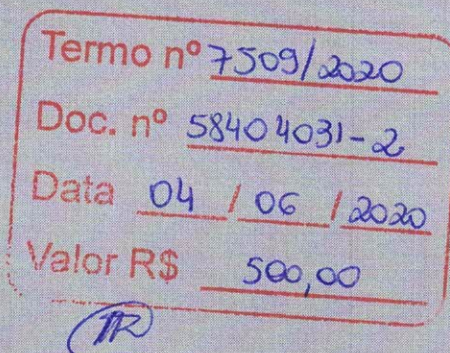 Termo nº 7509/2020
Doc. nº 58404031-2
Data 04 / 06 / 2020
Valor R$ 500,00